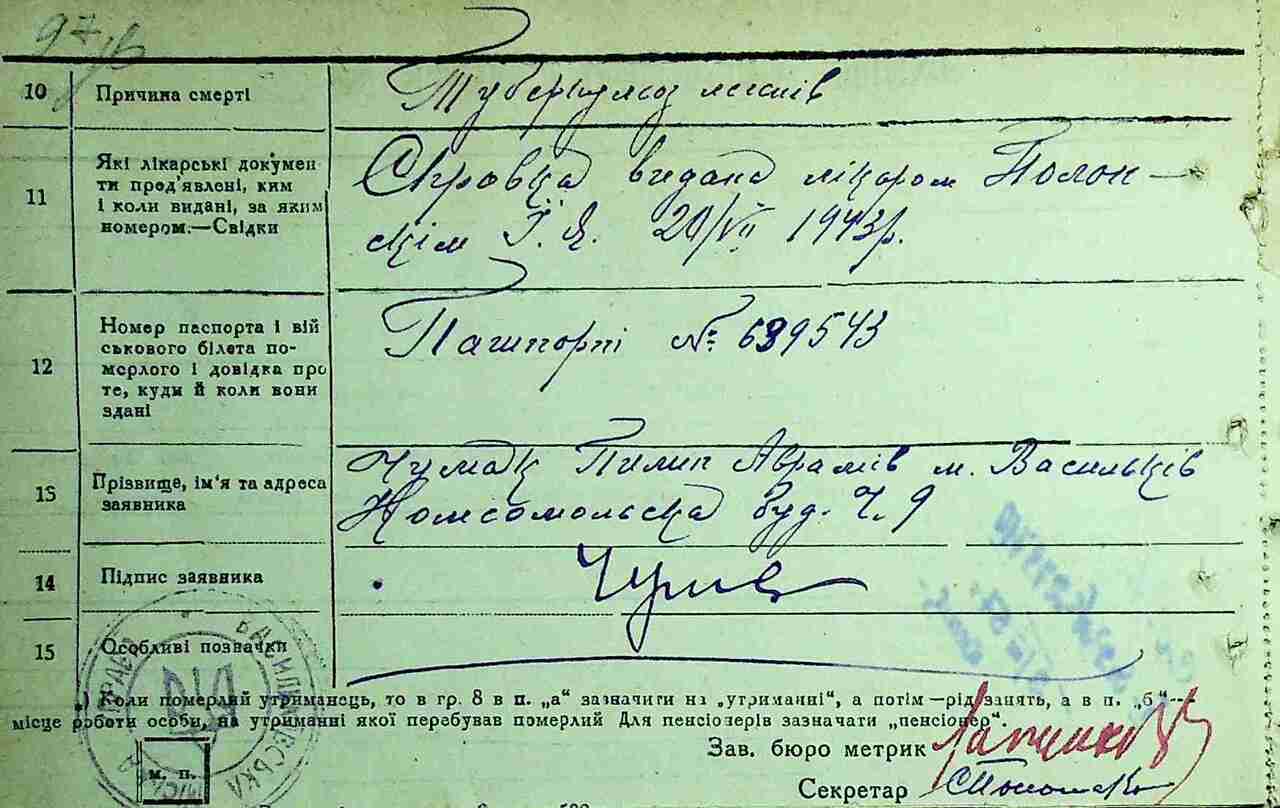 97/b
10 Причина смерті Туберкульоз легенів
11 Які лікарські докумен-
ти пред'явлені, ким
і коли видані, за яким
номером.—Свідки
Справка видана лікаром Полон-
скім І. Я. 20/VII 1943р.
12 Номер паспорта і вій
ськового білета по-
мерлого і довідка про
те, куди й коли вони
здані
Пашпорт № 639543
13 Прізвище, ім'я та адреса
заявника
Чумак Пилип Аврамів м. Васильків
Комсомольска буд. Ч. 9
14 Підпис заявника
15 Особливі позначки
ВАСИЛЬКІВСЬКА МІСЬКА УПРАВА
) Коли померлий утриманець, то в гр. 8 в п. „а“ зазначити на „утриманні“, а потім—рід занять, а в п. „б“—
місце роботи особи, на утриманні якої перебував померлий Для пенсіонерів зазначати „пенсіонер“.
Зав. бюро метрик
м. п.
Секретар